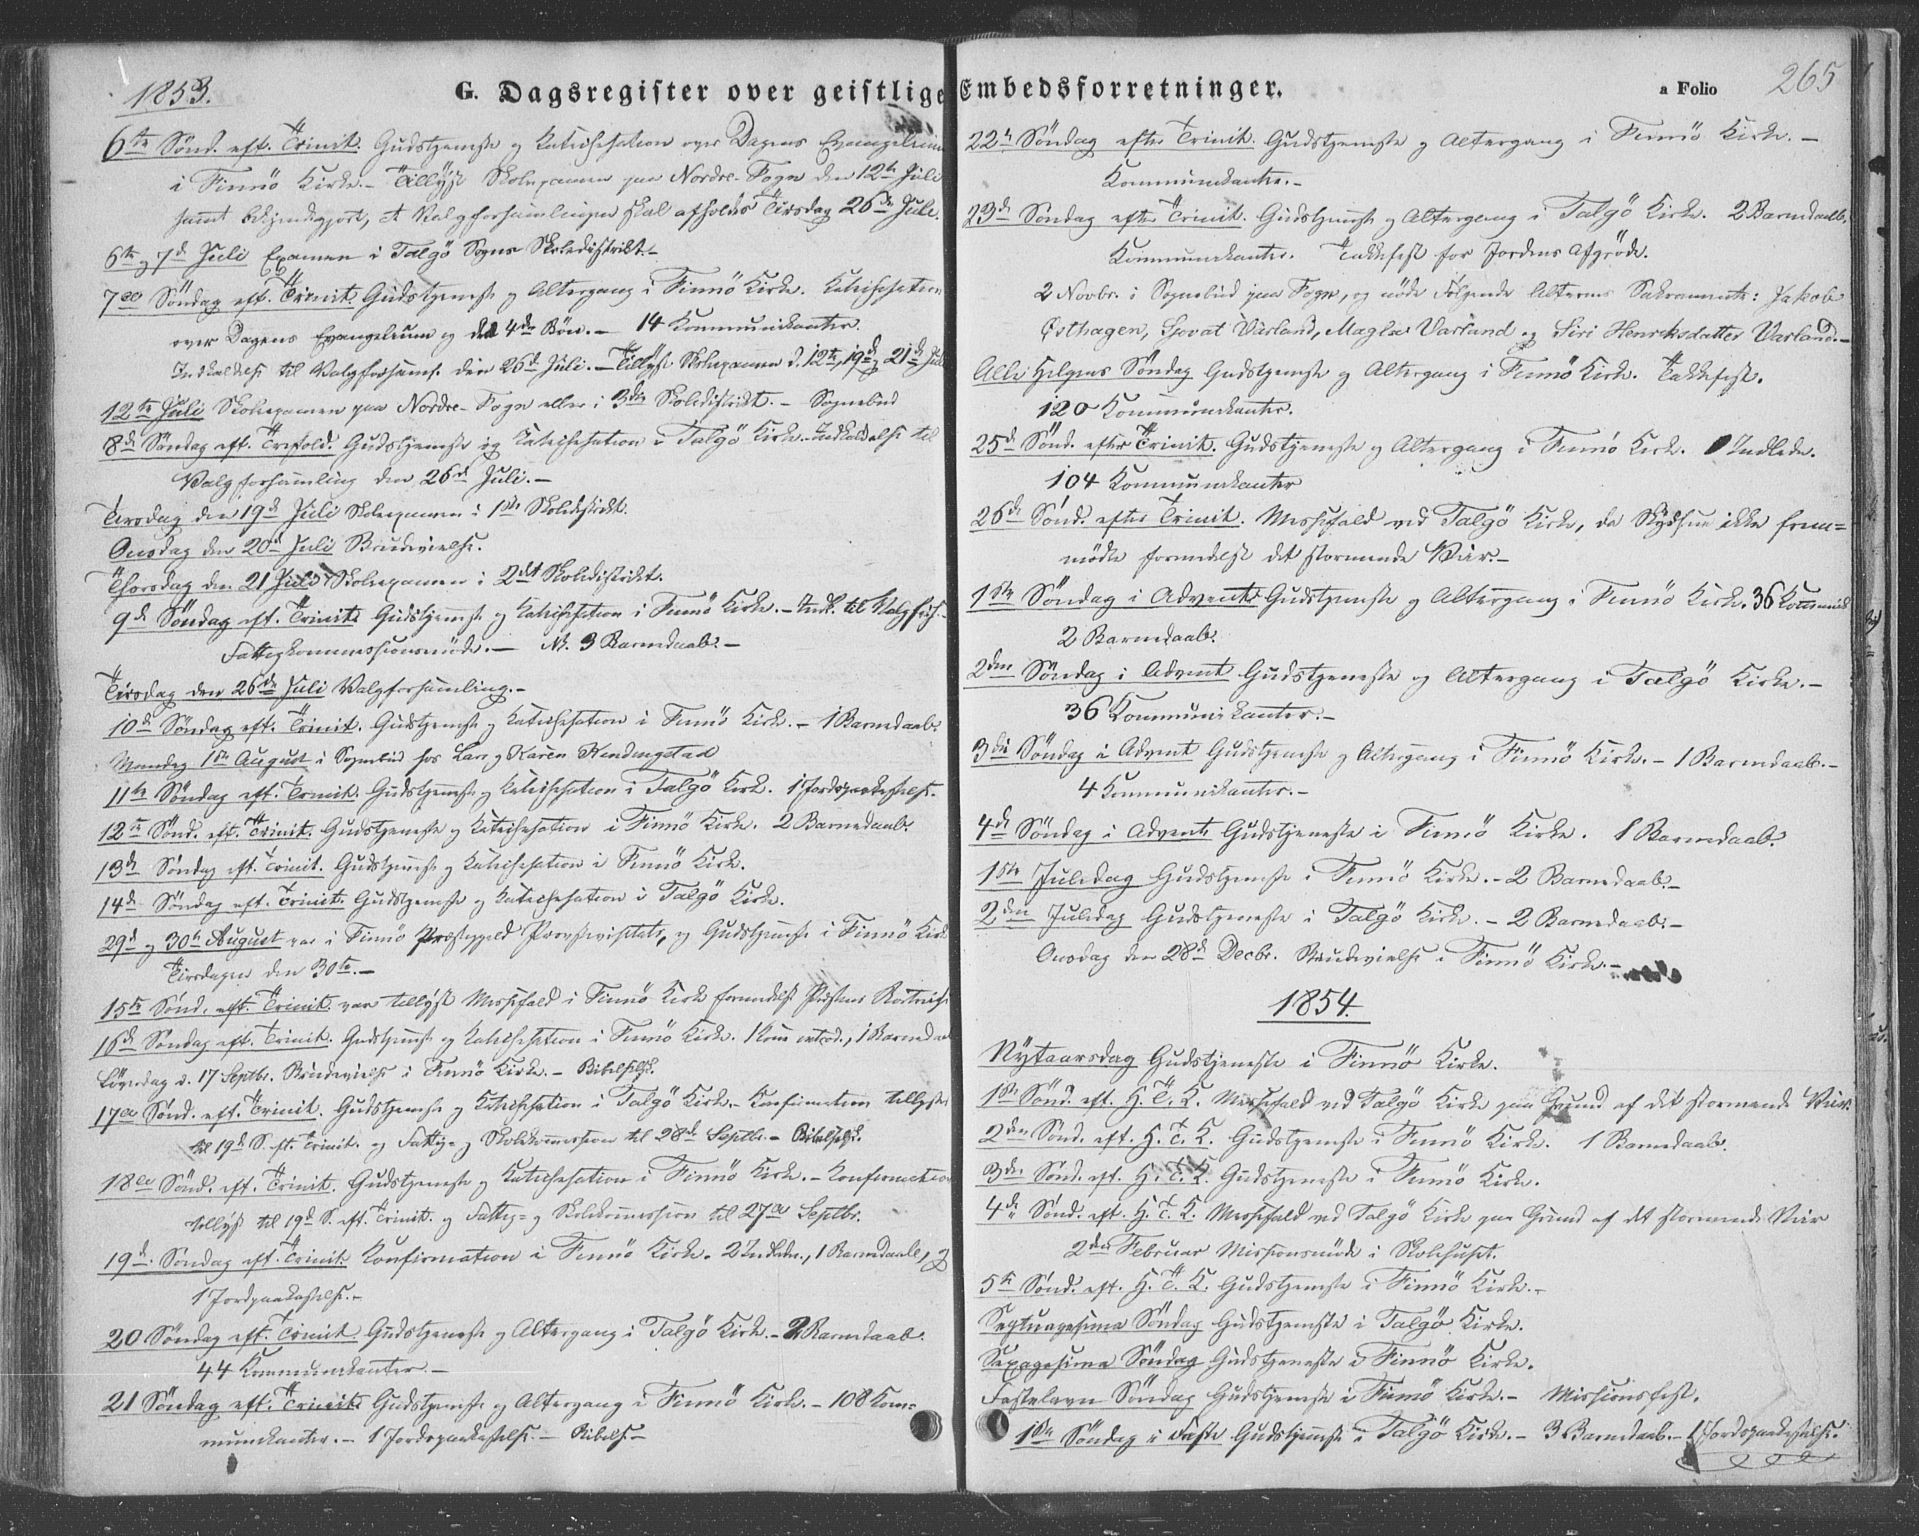 1853.
G. Dagsregister over geistlige Embedsforretninger.
a Folio 265
6te Sønd. eft. Trinit. Gudstjeneste og Katechisation over Dagens Evangelium
i Finnö Kirke. – Tillyst Skoleexamen paa Nordre-Fogn den 12te Juli
samt bekjendtgjort, at Valgforsamlingen skal afholdes Tirsdag 26de Juli.
6te og 7de Juli Examen i Talgö Sogns Skoledistrikt. –
7de Söndag eft. Trinit. Gudstjeneste og Altergang i Finnö Kirke. Katechisation
over Dagens Evangelium og den 4de Bön. – 14 Kommunikanter.
Indkaldelse til Valgforsaml. den 26de Juli. – Tillyst Skoleexamen d. 12te, 19de og 21de Juli
12te Juli Skoleexamen paa Nordre-Fogn eller i 3die Skoledistrikt. – Sognebud
8de Söndag eft. Trefold. Gudstjeneste og Katechisation i Talgö Kirke. – Indkaldelse til
Valgforsamling den 26de Juli. –
Tirsdag den 19de Juli Skoleexamen i 1ste Skoledistrikt.
Onsdag den 20de Juli Brudevielse.
Thorsdag den 21 Juli Skoleexamen i 2det Skoledistrikt.
9de Söndag eft. Trinit. Gudstjeneste og Katechisation i Finnö Kirke. – Indk. til Valgfors. –
Fattigkommissionsmöde. – 3 Barnedaab. –
Tirsdag den 26de Juli Valgforsamling. –
10de Söndag eft. Trinit. Gudstjeneste og Katechisation i Finnö Kirke. – 1 Barnedaab.
Mandag 1ste August i Sognebud hos Lars og Karen Hendingstad
11te Söndag eft. Trinit. Gudstjeneste og Katechisation i Talgö Kirke. 1 Jordspaakastelse.
12te Sønd. eft. Trinit. Gudstjeneste og Katechisation i Finnö Kirke. 2 Barnedaab.
13de Söndag eft. Trinit. Gudstjeneste og Katechisation i Finnö Kirke.
14de Söndag eft. Trinit. Gudstjeneste og Katechisation i Talgö Kirke.
29de og 30te August var i Finnö Præstegjeld Provstevisitats, og Gudstjeneste i Finnö Kirke
Tirsdagen den 30te. –
15te Sønd. eft. Trinit. var tillyst Messefald i Finnö Kirke formedelst Præstens
16de Söndag eft. Trinit. Gudstjeneste og Katechisation i Finnö Kirke. 1 Kone introd., 1 Barnedaab
Löverdag d. 17 Septbr. Brudevielse i Finnö Kirke. – Bibelselsk.
17de Sønd. eft. Trinit. Gudstjeneste og Katechisation i Talgö Kirke. – Konfirmation tillyst
til 19de S. eft. Trinit. og Fattig- og Skolekommission til 28de Septbr. – Bibelselsk.
18de Sønd. eft. Trinit. Gudstjeneste og Katechisation i Finnö Kirke. – Konfirmation
tillyst til 19de S. eft. Trinit. og Fattig- og Skolekommission til 27de Septbr.
19de Söndag eft. Trinit. Konfirmation i Finnö Kirke. 2 Indledn., 1 Barnedaab, og
1 Jordpaakastelse. –
20 Söndag eft. Trinit. Gudstjeneste og Altergang i Talgö Kirke. – 2 Barnedaab.
44 Kommunikanter. –
21 Söndag eft. Trinit. Gudstjeneste og Altergang i Finnö Kirke. – 108 Kom=
munikanter. – 1 Jordspaakastelse. – Bibels. –
22de Söndag efter Trinit. Gudstjeneste og Altergang i Finnö Kirke. –
Kommunikanter. –
23de Söndag efter Trinit. Gudstjeneste og Altergang i Talgö Kirke. 2 Barnedaab.
Kommunikanter. Takkefest for Jordens Afgröde.
2 Novbr. i Sognebud paa Fogn, og nöde Fölgende Alterens Sakramente: Jakob
Østhagen, Sjovat Varland, Magla Varland og Siri Henriksdatter Varland. –
Alle Helgens Söndag Gudstjeneste og Altergang i Finnö Kirke. Takkefest.
120 Kommunikanter.
25de Sønd. efter Trinit. Gudstjeneste og Altergang i Finnö Kirke. 1 Indledn.
104 Kommunikanter
26de Sønd. efter Trinit. Messefald ved Talgö Kirke, da Skydsen ikke frem=
mödte formedelst det stormende Veir. –
1ste Söndag i Advent Gudstjeneste og Altergang i Finnö Kirke. 36 Kommunik
2 Barnedaab.
2den Söndag i Advent Gudstjeneste og Altergang i Talgö Kirke. –
36 Kommunikanter. –
3die Söndag i Advent Gudstjeneste og Altergang i Finnö Kirke. – 1 Barnedaab. –
4 Kommunikanter. –
4de Söndag i Advent Gudstjeneste i Finnö Kirke. 1 Barnedaab.
1ste Juledag Gudstjeneste i Finnö Kirke. – 2 Barnedaab. –
2den Juledag Gudstjeneste i Talgö Kirke. – 2 Barnedaab. –
Onsdag den 28de Decbr. Brudevielse i Finnö Kirke. –
1854.
Nytaarsdag Gudstjeneste i Finnö Kirke.
1ste Sønd. eft. H. T. K. Messefald ved Talgö Kirke paa Grund af det stormende Veir.
2den Sønd. eft. H. T. K. Gudstjeneste i Finnö Kirke. 1 Barnedaab.
3die Sønd. eft. H. T. K. Gudstjeneste i Finnö Kirke.
4de Sønd. eft. H. T. K. Messefald ved Talgö Kirke paa Grund af det stormende Veir
2den Februar Missionsmöde i Skolehuset.
5te Sønd. eft. H. T. K. Gudstjeneste i Finnö Kirke. –
Septuagesima Söndag Gudstjeneste i Talgö Kirke.
Sexagesima Söndag Gudstjeneste i Finnö Kirke.
Fastelavn Söndag Gudstjeneste i Finnö Kirke. – Missionsfest.
1ste Söndag i Faste Gudstjeneste i Talgö Kirke. – 3 Barnedaab. – 1 Jordspaakastelse.